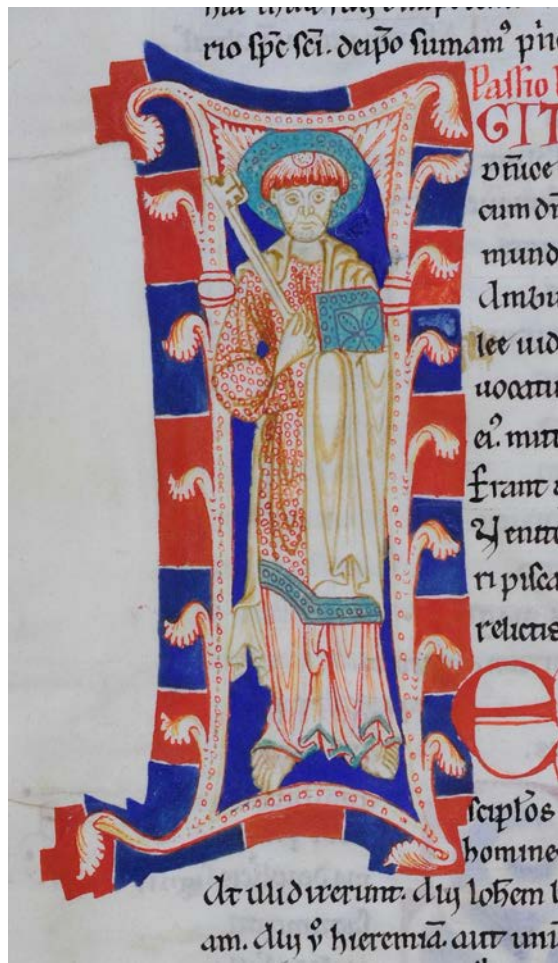 rio sp̄c sc̄i. deip̄o sumam⁹
Passio
GIT
vn̄ice
cum dn̄
mund
Ambu
lee uid
uocatu
ei⁹. mitt
Erant
Venite
ri pisca
relictis
E
scipl̄os
homine
At illi dixerunt. Alij ioh̄em
am. Alij v̊ hieremiā. aut unū